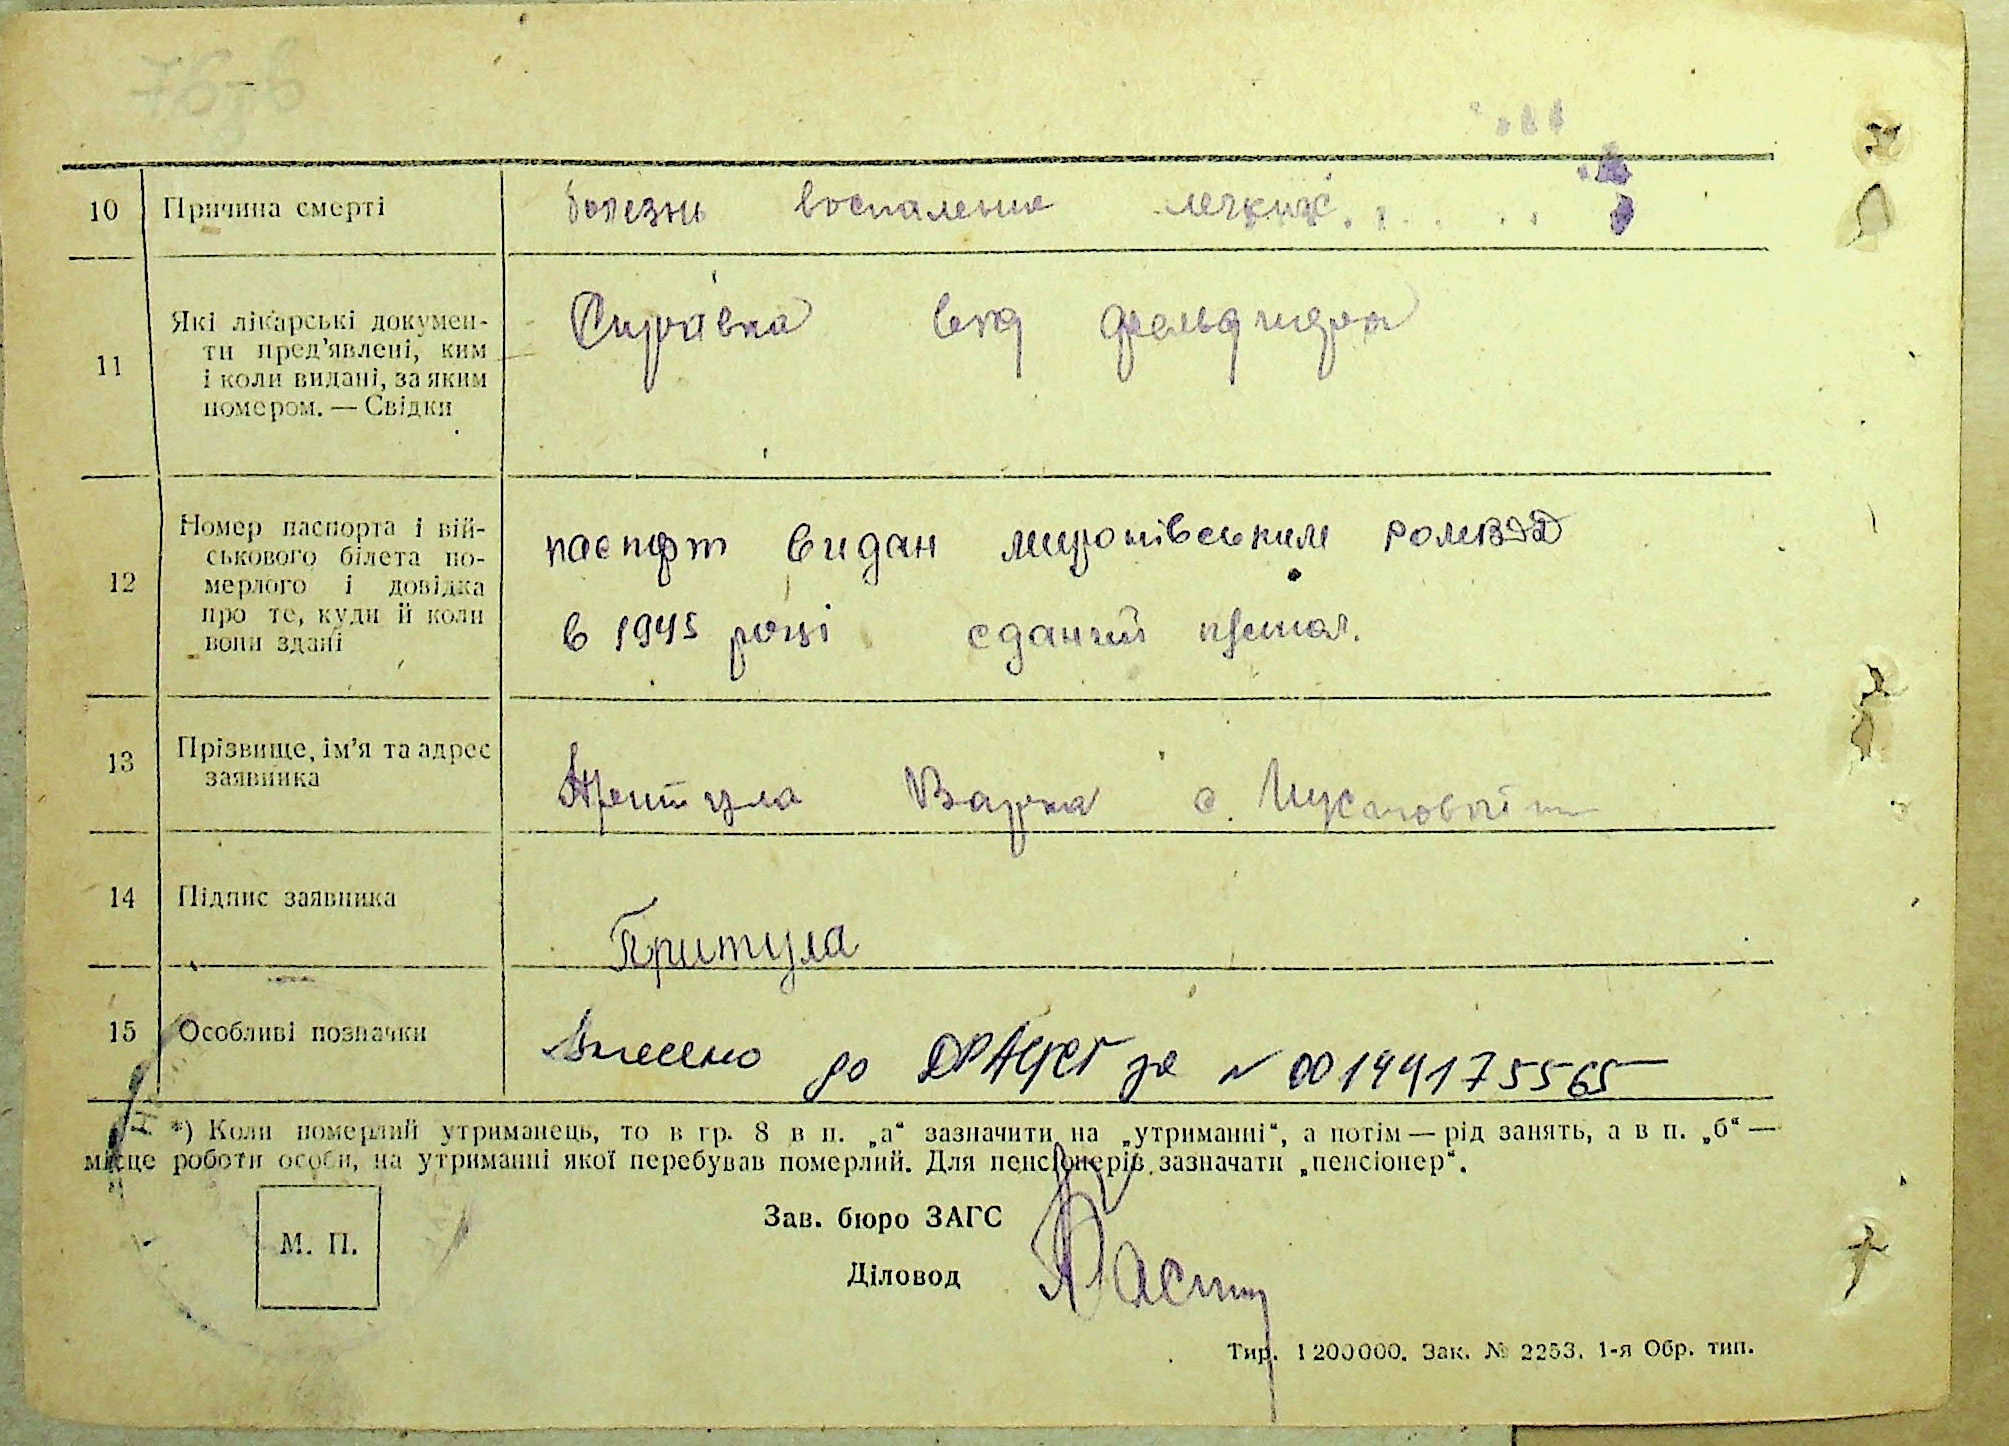 10 Причина смерті болезнь воспаление легких
11 Які лікарські докумен-
ти пред'явлені, ким
і коли видані, за яким
номером. — Свідки
Справка від фельдшера
12 Номер паспорта і вій-
ськового білета по-
мерлого і довідка
про те, куди й коли
вони здані
паспорт видан миронівським
в 1945 році сданий
13 Прізвище, ім'я та адрес
заявника
Притула Варка с.
14 Підпис заявника Притула
15 Особливі позначки Внесено до ДРАЦСГ за N 00144175565
*) Коли померлий утриманець, то в гр. 8 в п. „а“ зазначити на „утриманні“, а потім — рід занять, а в п. „б“ —
місце роботи особи, на утриманні якої перебував померлий. Для пенсіонерів зазначати „пенсіонер“.
М. П.
Зав. бюро ЗАГС
Діловод
Тир. 1200000. Зак. № 2253. 1-я Обр. тип.